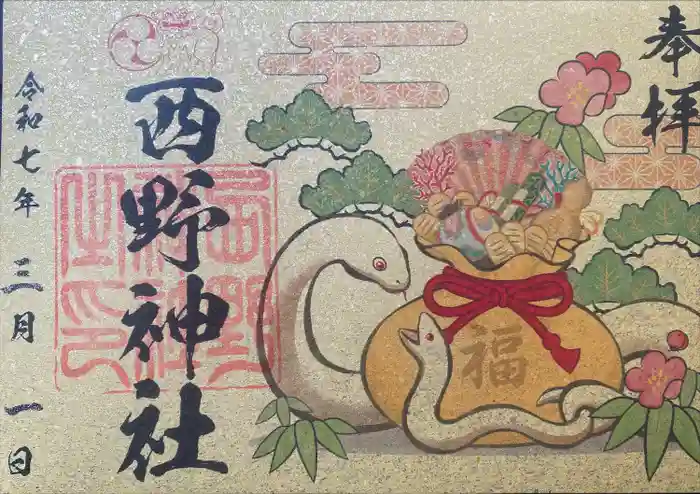 奉拝
西野神社
福
令和七年 三月 一日